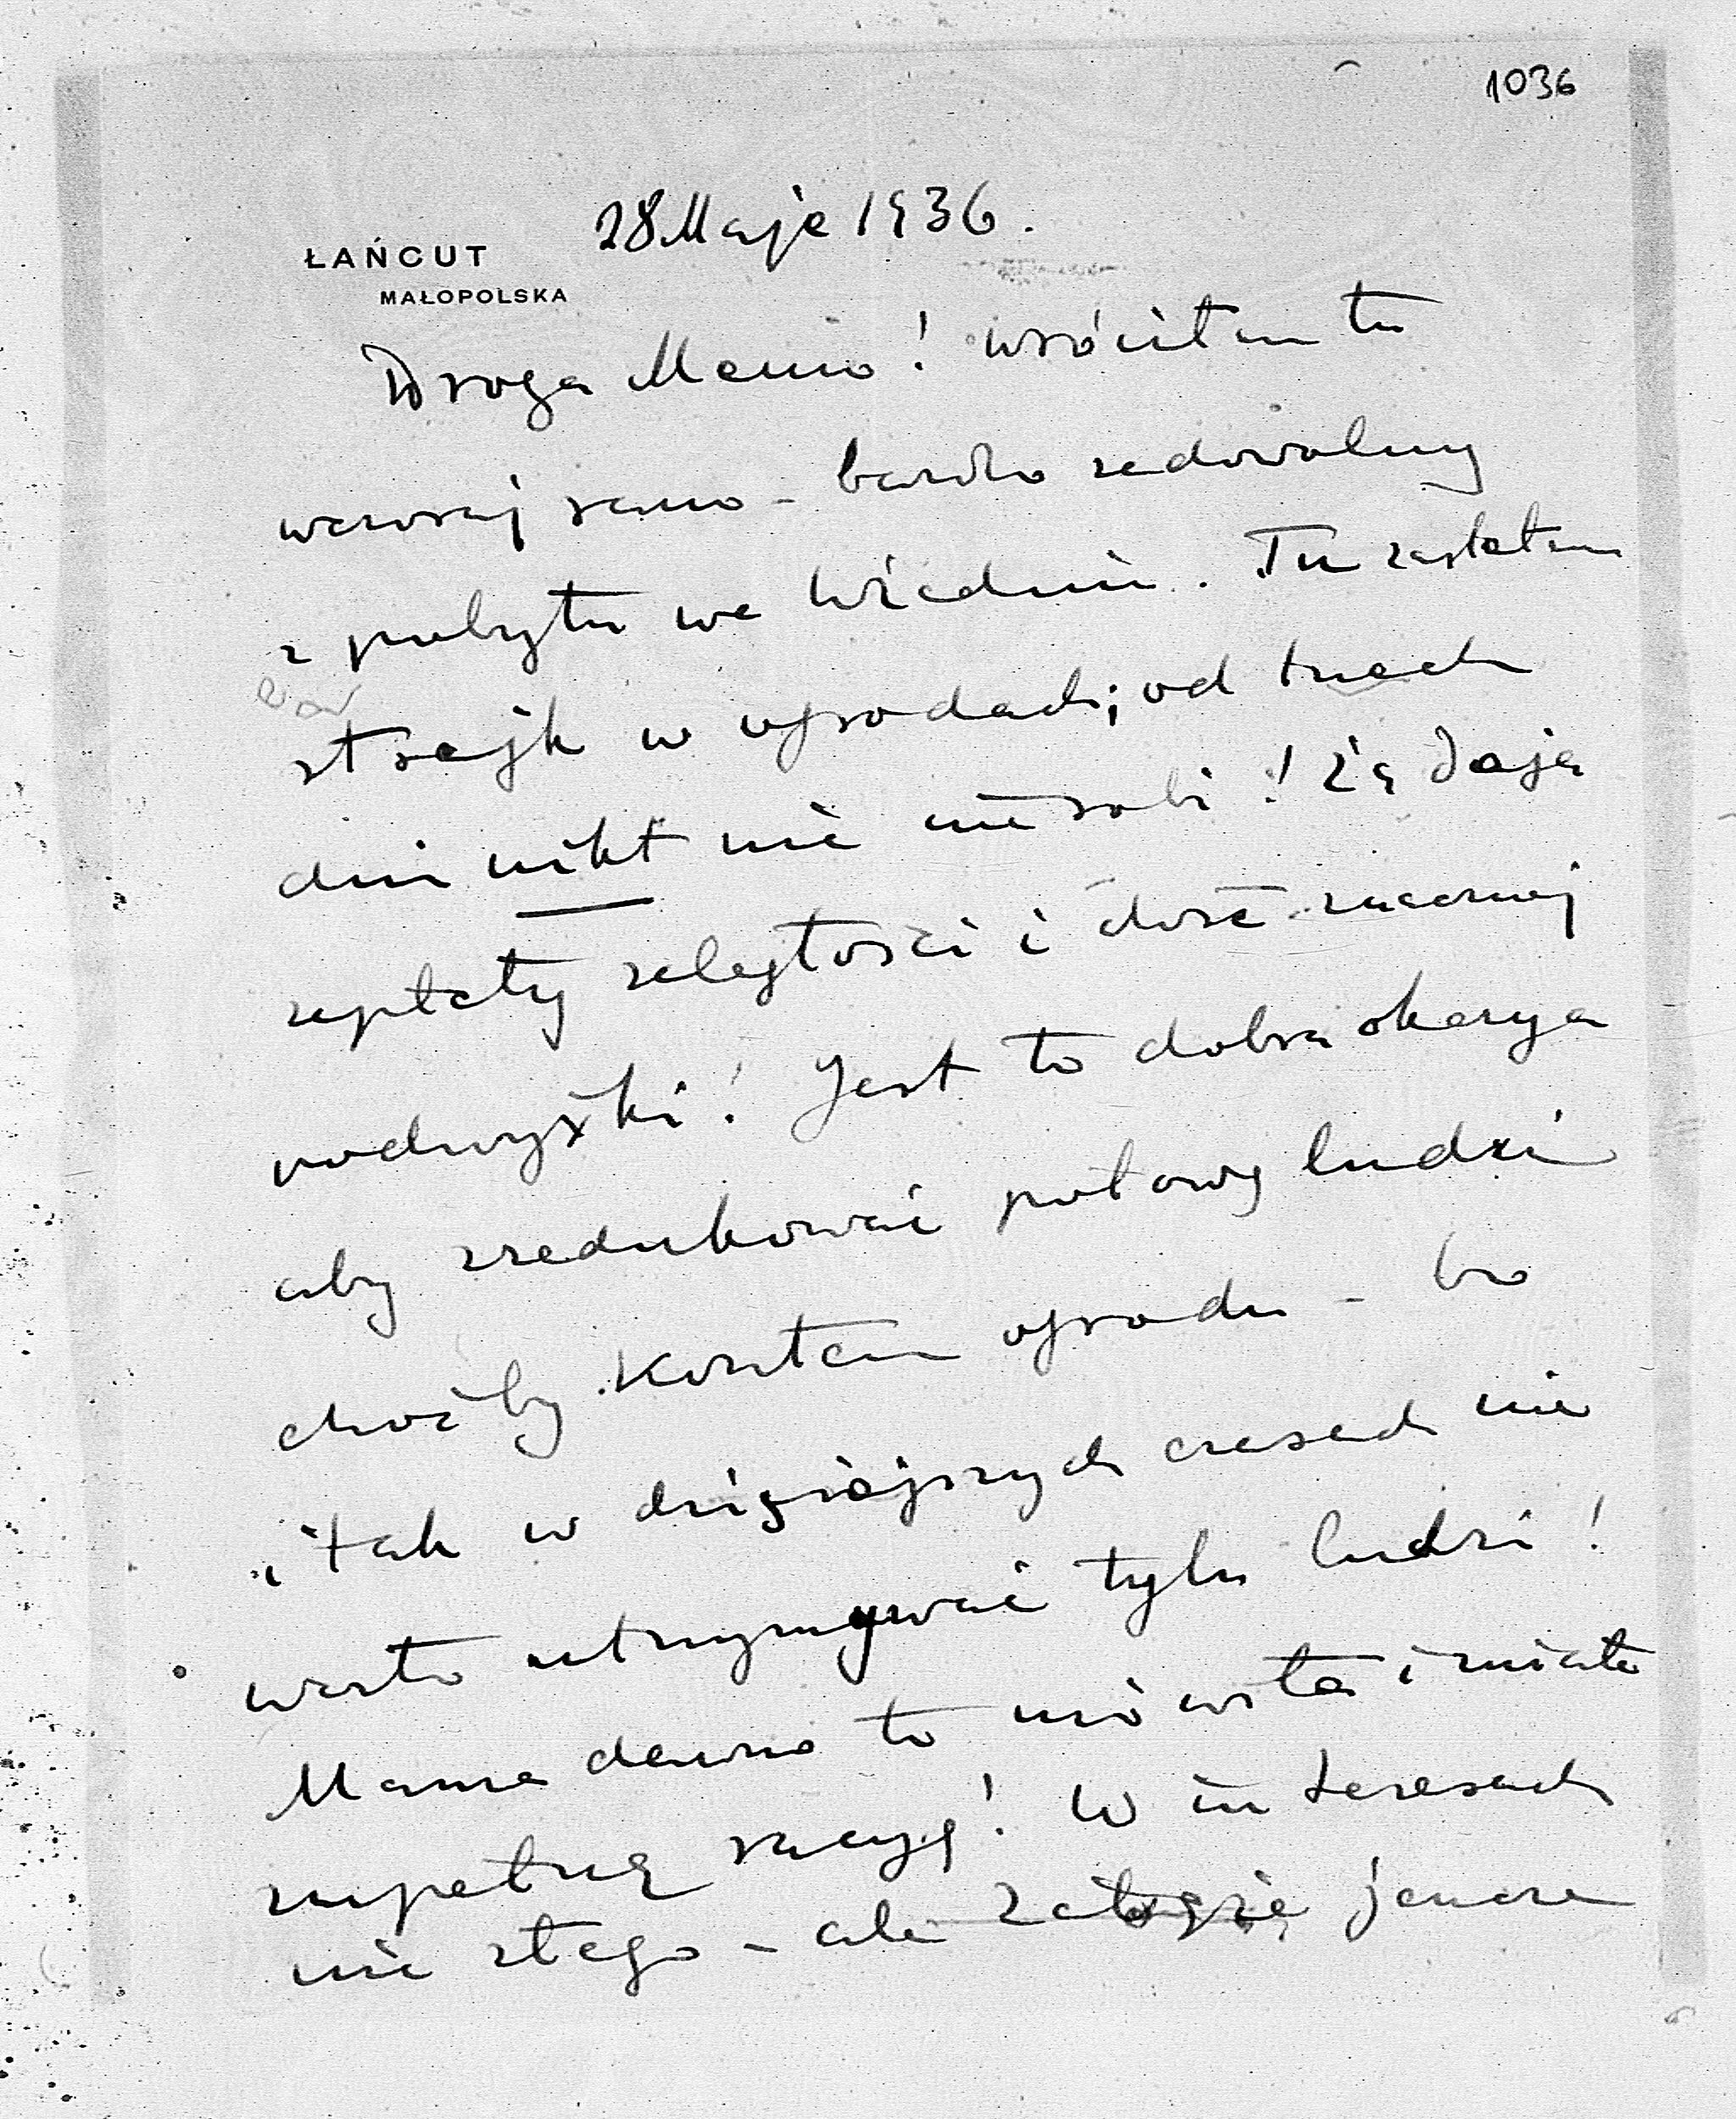 1036
28 Maja 1936.
ŁAŃCUT
MAŁOPOLSKA
Droga Mamo! wróciłam tu
wczoraj rano - bardzo zadowolony
z pobytu we Wiedniu. Tu zastałam
strajk w ogrodach; od trzech
dni nikt nie nie robi! Żądają
zapłaty zaległości i dość znacznej
podwyżki! Jest to dobra okazya
aby zredukować połowę ludzi
choćby kosztem ogrodu - bo
i tak w dzisiejszych czasach nie
warto utrzymywać tylu ludzi!
Mama dawno to mówiła i miała
zupełną racyę! W interesach
nic złego - ale